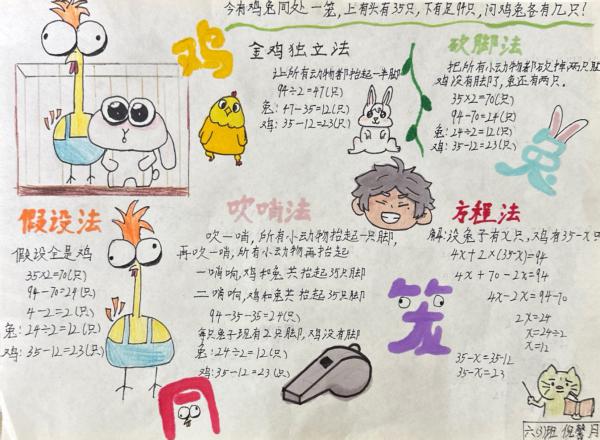 今有鸡兔同处一笼，上有头有35只，下有足94只，问鸡兔各有几只？
鸡
金鸡独立法
让所有动物都抬起一半脚
94÷2=47(只)
兔：47-35=12(只)
鸡：35-12=23(只)
砍脚法
把所有小动物都砍掉两只脚
鸡没有脚了，兔还有两只。
35×2=70(只)
94-70=24(只)
兔：24÷2=12(只)
鸡：35-12=23(只)
兔
假设法
假设全是鸡
35×2=70(只)
94-70=24(只)
4-2=2(只)
兔：24÷2=12(只)
鸡：35-12=23(只)
吹哨法
吹一哨，所有小动物抬起一只脚，
再吹一哨，所有小动物再抬起
一哨响，鸡和兔共抬起35只脚
二哨响，鸡和兔共抬起35只脚
94-35-35=24(只)
每只兔子现有2只脚，鸡没有脚
兔：24÷2=12(只)
鸡：35-12=23(只)
方程法
解：设兔子有x只，鸡有35-x只
4x+2x(35-x)=94
4x+70-2x=94
4x-2x=94-70
2x=24
x=24÷2
x=12
35-x=35-12
35-x=23
笼
同
六(3)班 倪馨月